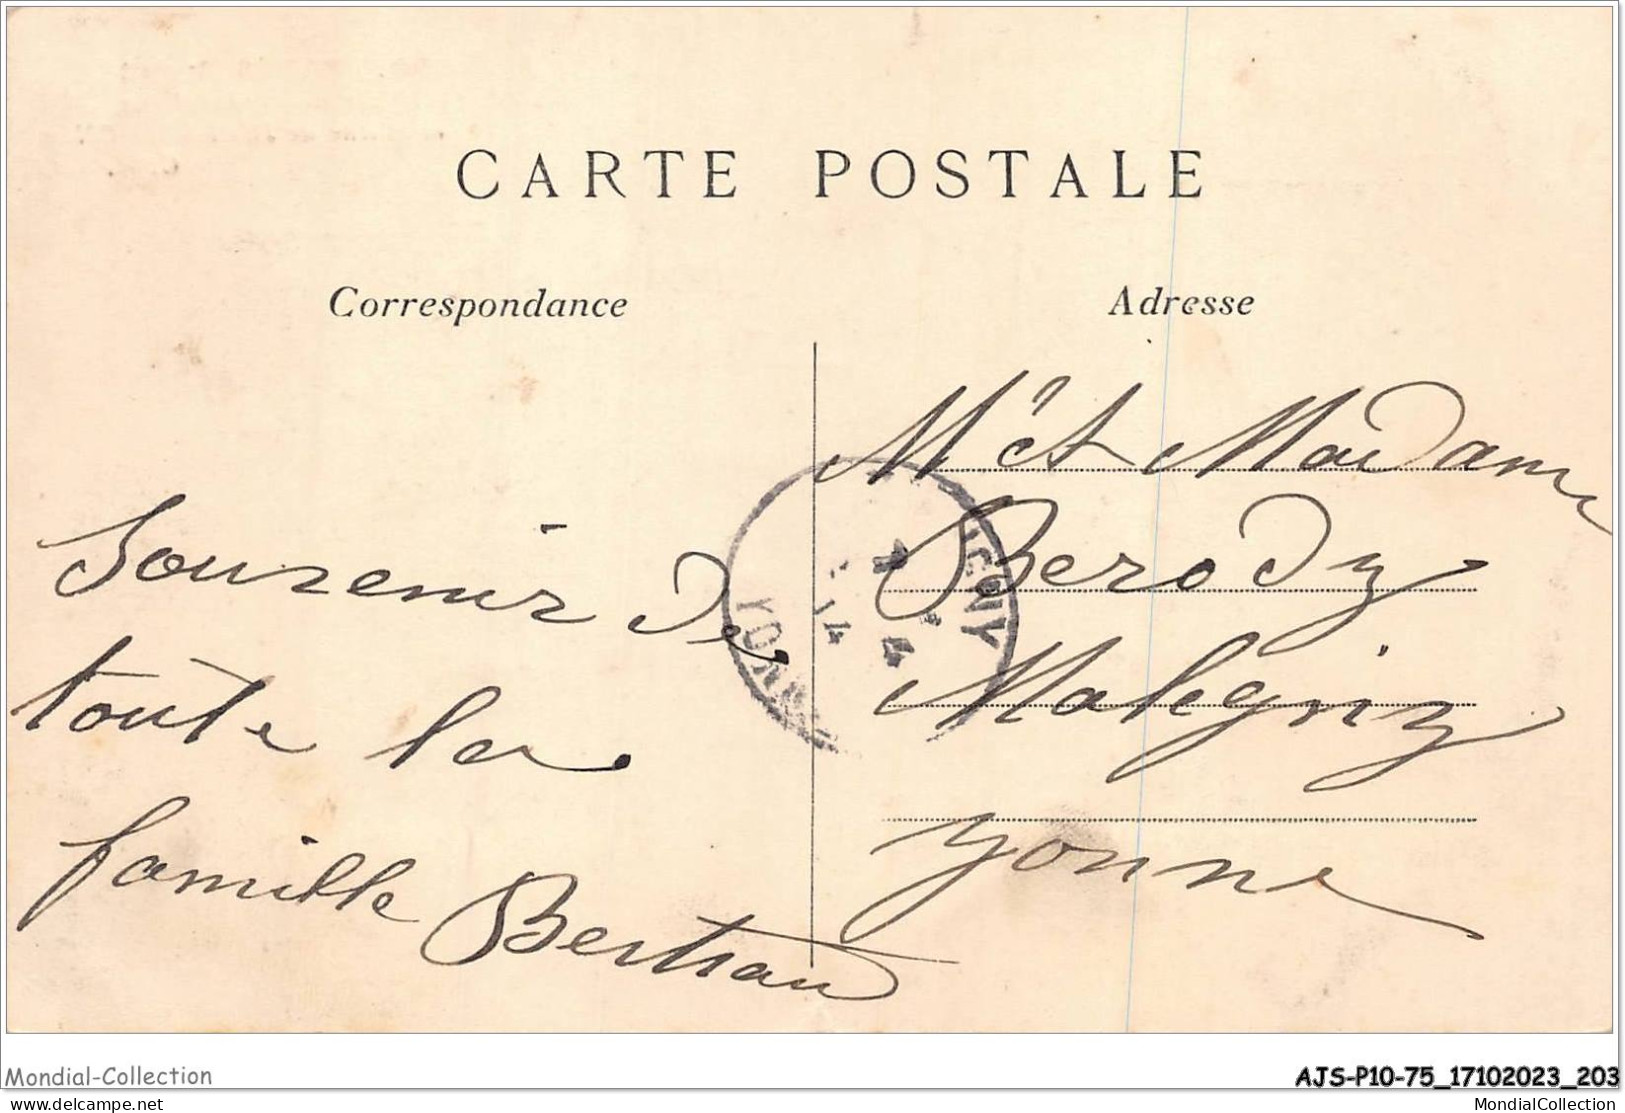 CARTE POSTALE
Correspondance
Adresse
Souvenir de
toute la
famille Bertrand
Mr et Madame
Berody
Maligny
Yonne
IGNY
4
14
YONNE
Mondial-Collection
AJS-P10-75_17102023_203
delcampe.net
MondialCollection